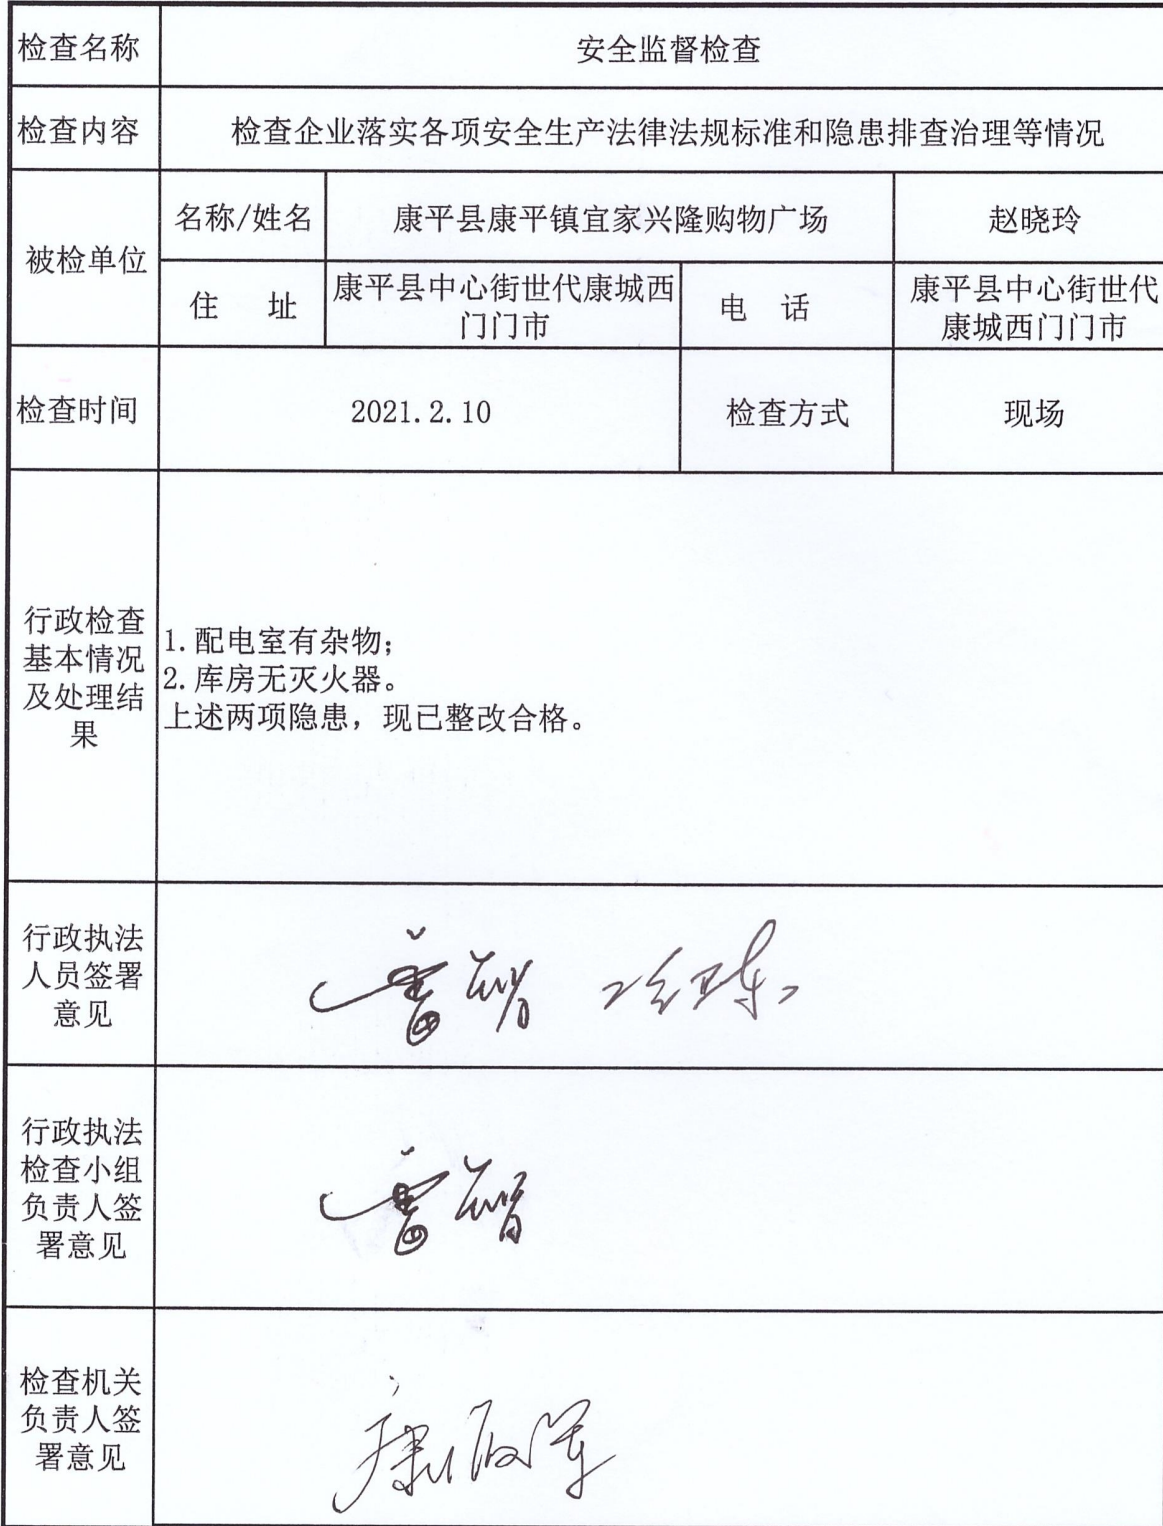 检查名称
安全监督检查
检查内容
检查企业落实各项安全生产法律法规标准和隐患排查治理等情况
被检单位
名称/姓名
康平县康平镇宜家兴隆购物广场
赵晓玲
住 址
康平县中心街世代康城西
门门市
电 话
康平县中心街世代
康城西门门市
检查时间
2021.2.10
检查方式
现场
行政检查
基本情况
及处理结
果
1.配电室有杂物；
2.库房无灭火器。
上述两项隐患，现已整改合格。
行政执法
人员签署
意见
行政执法
检查小组
负责人签
署意见
检查机关
负责人签
署意见